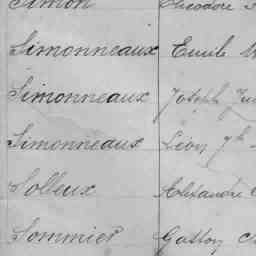 Simon Théodore
Simonneaux Emile
Simonneaux Joseph
Simonneaux Léon
Solleux Alexandre
Sommier Gaston